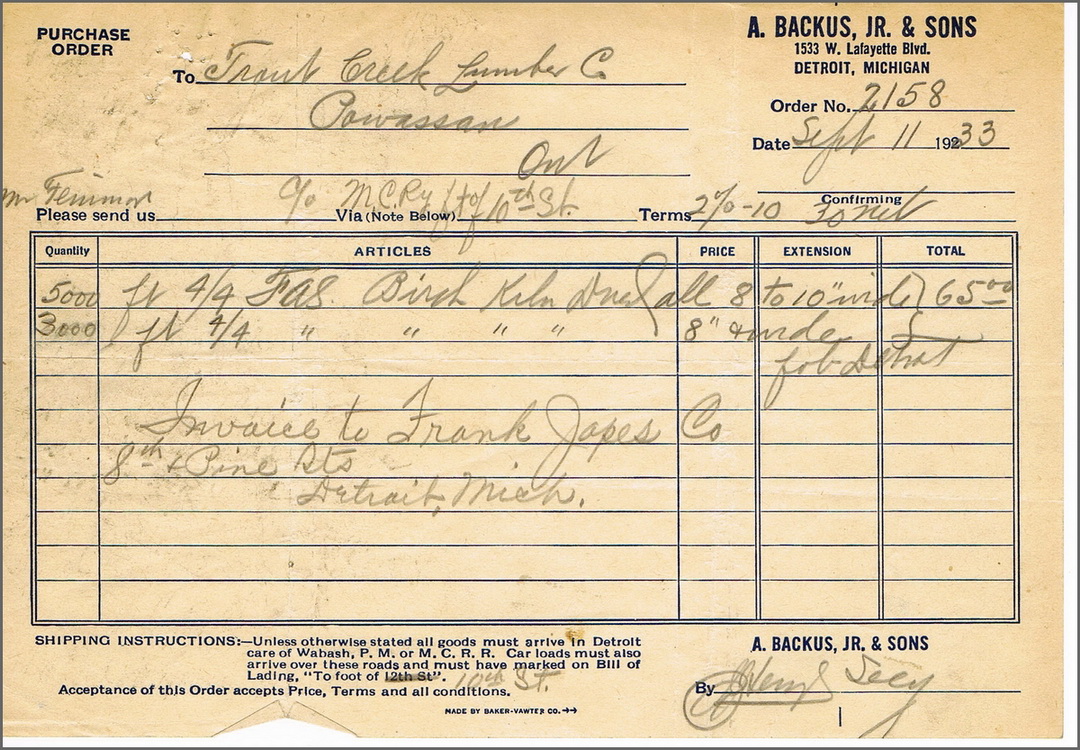 PURCHASE ORDER
A. BACKUS, JR. & SONS
1533 W. Lafayette Blvd.
DETROIT, MICHIGAN
To Trout Creek Lumber Co
Powassan
Ont
Order No. 2158
Date Sept 11 1933
Confirming
Please send us c/o M.C.Ry ft of 10th St. Via (Note Below) Terms 2%-10
Quantity ARTICLES PRICE EXTENSION TOTAL
5000 ft 4/4 FAS. Birch Kiln Dried (all 8 to 10" wide) 65 00
3000 ft 4/4 " " " " 8" & wider
fob Detroit
Invoice to Frank Japes Co
8th & Pine Sts
Detroit, Mich.
SHIPPING INSTRUCTIONS:—Unless otherwise stated all goods must arrive in Detroit
care of Wabash, P. M. or M. C. R. R. Car loads must also
arrive over these roads and must have marked on Bill of
Lading, "To foot of 12th St". 10th St.
Acceptance of this Order accepts Price, Terms and all conditions.
MADE BY BAKER-VAWTER CO.
A. BACKUS, JR. & SONS
By Secy